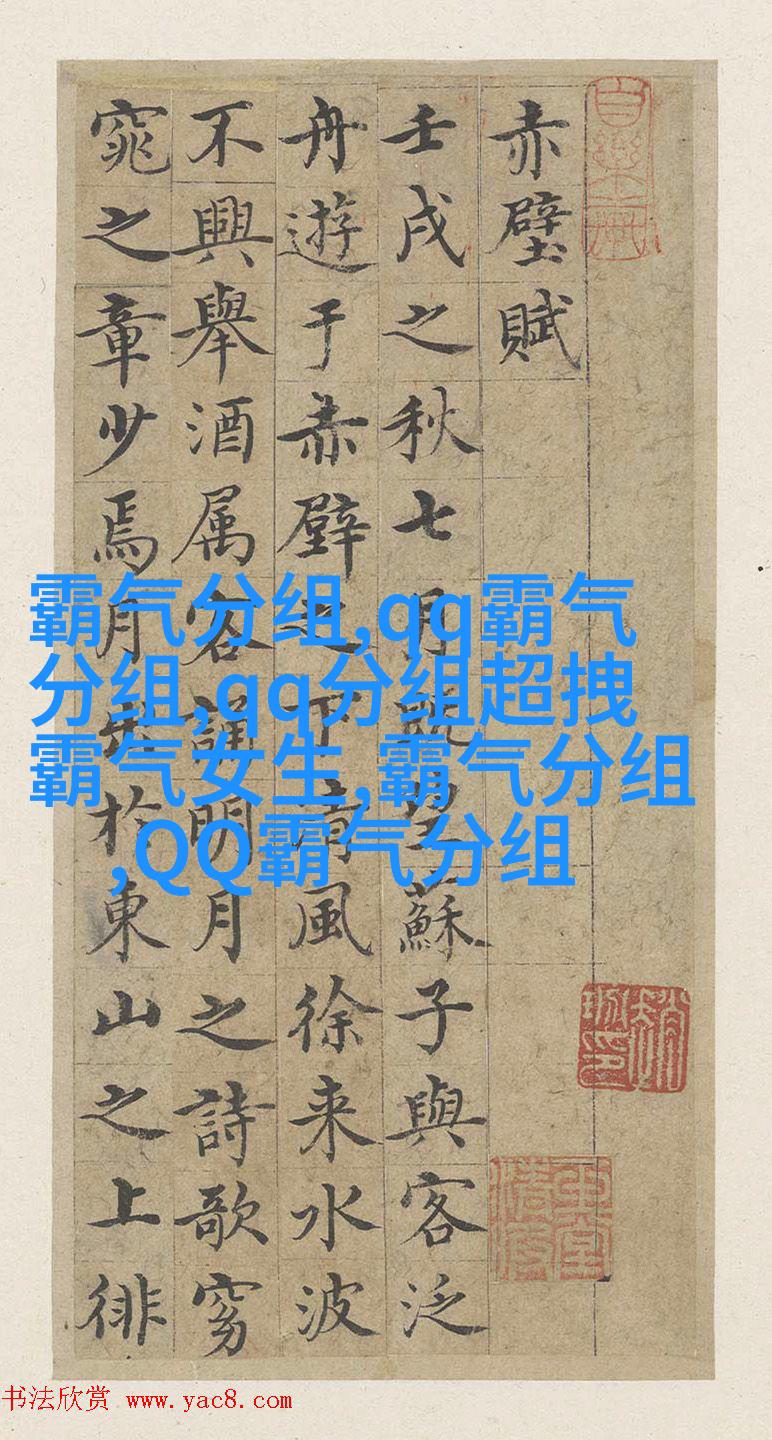 赤壁賦
壬戌之秋七月既望蘇子與客泛
舟遊于赤壁之下清風徐来水波
不興舉酒属客誦明月之詩歌窈
窕之章少焉月出於東山之上徘
霸气分组,qq霸气
分组,qq分组超拽
霸气女生,霸气分组
,QQ霸气分组
书法欣赏 www.yac8.com